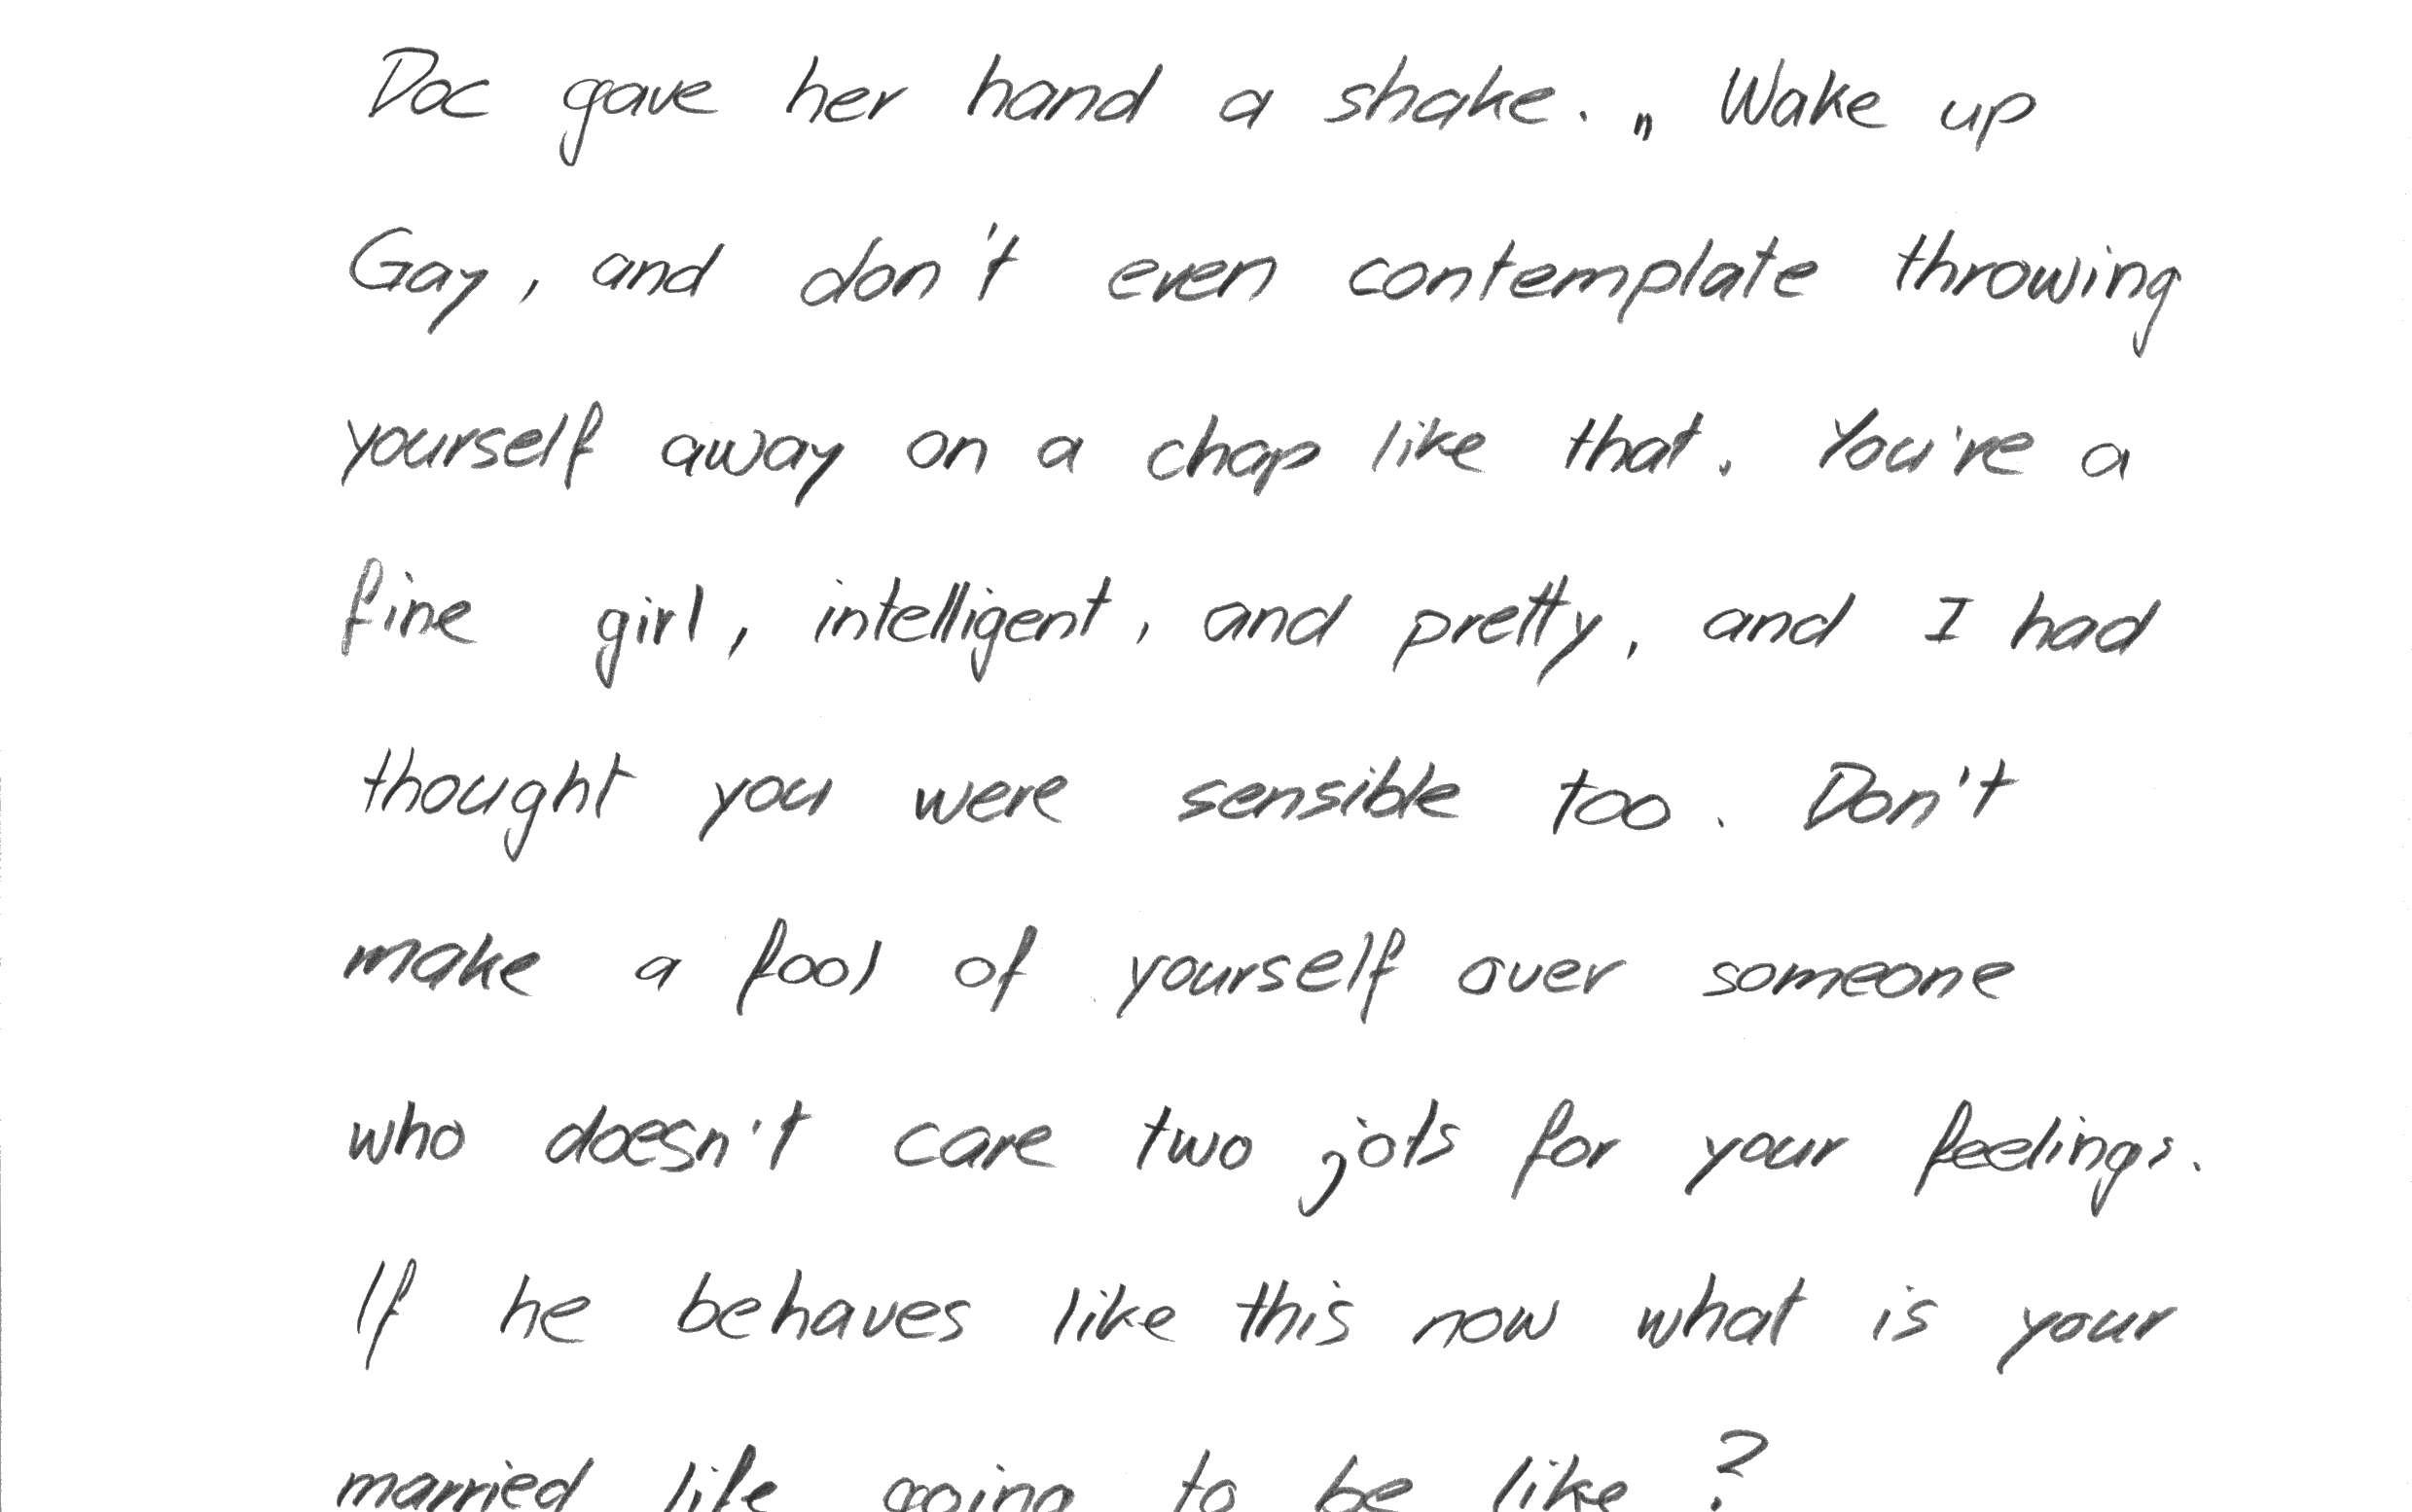 Doc gave her hand a shake. „Wake up
Gay, and don't even contemplate throwing
yourself away on a chap like that. You're a
fine girl, intelligent, and pretty, and I had
thought you were sensible too. Don't
make a fool of yourself over someone
who doesn't care two jots for your feelings.
If he behaves like this now what is your
married life going to be like?